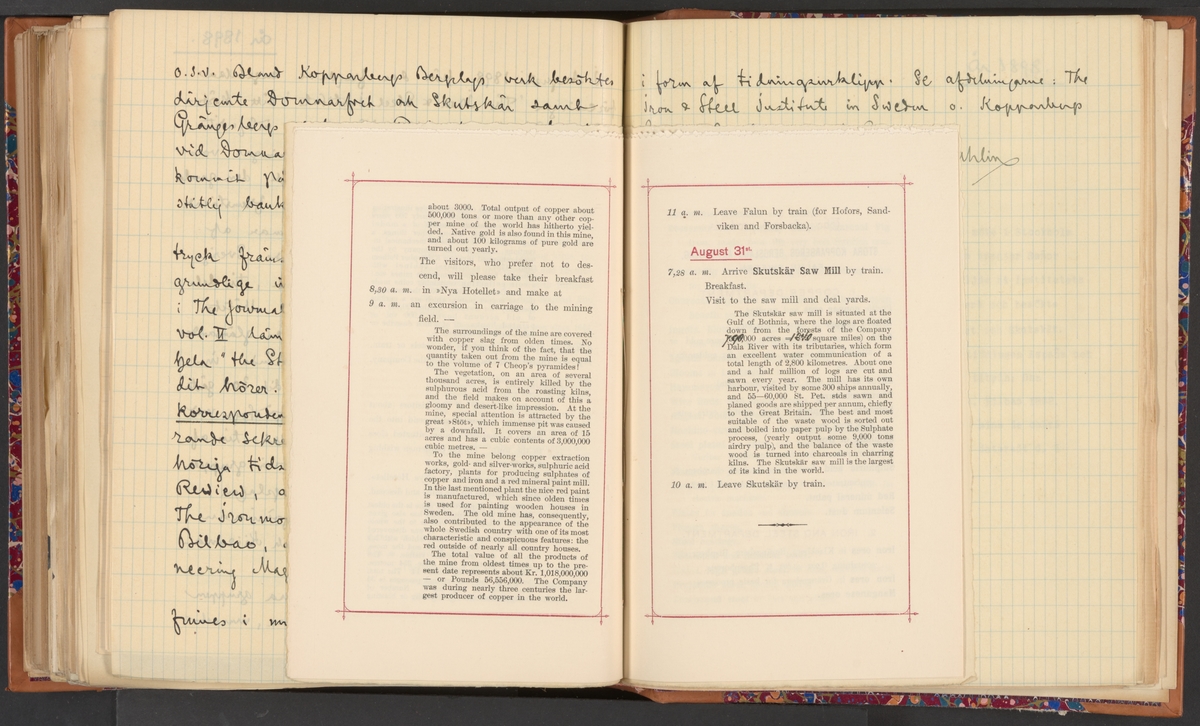 o. s. v. Bland Kopparbergs Bergslags verk besöktes
dirjemte Domnarfvet och Skutskär samt
Grängesberg
vid Domna
kommit på
ståtlig bank
tryck främ
grundlige
i The Journal
vol. II läm
hela "the St
dit hörer.
korresponden
rande sekre
höriga tids
Rewiew,
The Ironmo
Bilbao,
neering Mag
finnes i
i form af tidningsurklipp. Se afdelningarne: The
Iron & Steel Institute in Sweden o. Kopparbergs
about 3000. Total output of copper about
500,000 tons or more than any other cop-
per mine of the world has hitherto yiel-
ded. Native gold is also found in this mine,
and about 100 kilograms of pure gold are
turned out yearly.
The visitors, who prefer not to des-
cend, will please take their breakfast
8,30 a. m. in »Nya Hotellet» and make at
9 a. m. an excursion in carriage to the mining
field. —
The surroundings of the mine are covered
with copper slag from olden times. No
wonder, if you think of the fact, that the
quantity taken out from the mine is equal
to the volume of 7 Cheop's pyramides!
The vegetation, on an area of several
thousand acres, is entirely killed by the
sulphurous acid from the roasting kilns,
and the field makes on account of this a
gloomy and desert-like impression. At the
mine, special attention is attracted by the
great »Stöt», which immense pit was caused
by a downfall. It covers an area of 15
acres and has a cubic contents of 3,000,000
cubic metres. —
To the mine belong copper extraction
works, gold- and silver-works, sulphuric acid
factory, plants for producing sulphates of
copper and iron and a red mineral paint mill.
In the last mentioned plant the nice red paint
is manufactured, which since olden times
is used for painting wooden houses in
Sweden. The old mine has, consequently,
also contributed to the appearance of the
whole Swedish country with one of its most
characteristic and conspicuous features: the
red outside of nearly all country houses.
The total value of all the products of
the mine from oldest times up to the pre-
sent date represents about Kr. 1,018,000,000
— or Pounds 56,556,000. The Company
was during nearly three centuries the lar-
gest producer of copper in the world.
11 a. m. Leave Falun by train (for Hofors, Sand-
viken and Forsbacka).
August 31st.
7,28 a. m. Arrive Skutskär Saw Mill by train.
Breakfast.
Visit to the saw mill and deal yards.
The Skutskär saw mill is situated at the
Gulf of Bothnia, where the logs are floated
down from the forests of the Company
000 acres = square miles) on the
Dala River with its tributaries, which form
an excellent water communication of a
total length of 2,800 kilometres. About one
and a half million of logs are cut and
sawn every year. The mill has its own
harbour, visited by some 300 ships annually,
and 55—60,000 St. Pet. stds sawn and
planed goods are shipped per annum, chiefly
to the Great Britain. The best and most
suitable of the waste wood is sorted out
and boiled into paper pulp by the Sulphate
process, (yearly output some 9,000 tons
airdry pulp), and the balance of the waste
wood is turned into charcoals in charring
kilns. The Skutskär saw mill is the largest
of its kind in the world.
10 a. m. Leave Skutskär by train.